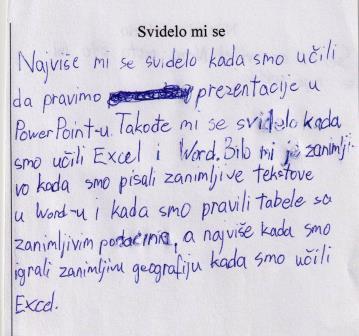 Svidelo mi se
Najviše mi se svidelo kada smo učili
da pravimo prezentacije u
PowerPoint-u. Takođe mi se svidelo kada
smo učili Excel i Word. Bilo mi je zanimlji-
vo kada smo pisali zanimljive tekstove
u Word-u i kada smo pravili tabele sa
zanimljivim podacima, a najviše kada smo
igrali zanimljivu geografiju kada smo učili
Excel.